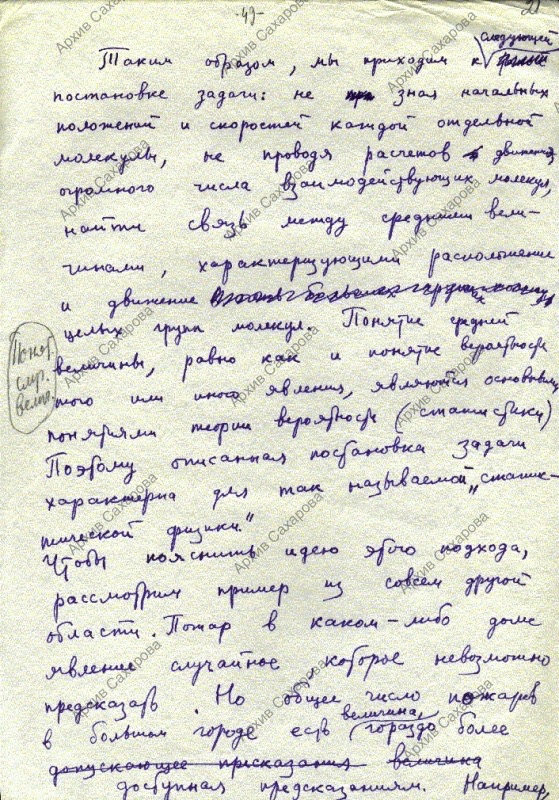 -49-
21
Таким образом, мы приходим к следующей
постановке задачи: не зная начальных
положений и скоростей каждой отдельной
молекулы, не проводя расчетов движения
огромного числа взаимодействующих молекул,
найти связь между средними вели-
чинами, характеризующими расположение
и движение
целых групп молекул. Понятие средней
величины, равно как и понятие вероятности
того или иного явления, являются основными
понятиями теории вероятности (статистики)
Поэтому описанная постановка задачи
характерна для так называемой „статис-
тической физики."
Чтобы пояснить идею этого подхода,
рассмотрим пример из совсем другой
области. Пожар в каком-либо доме
явление случайное, которое невозможно
предсказать. Но общее число пожаров
в большом городе есть величина, гораздо более
допускающее предсказания величина
доступная предсказаниям. Например,
Понят.
случ.
велич.
Архив Сахарова